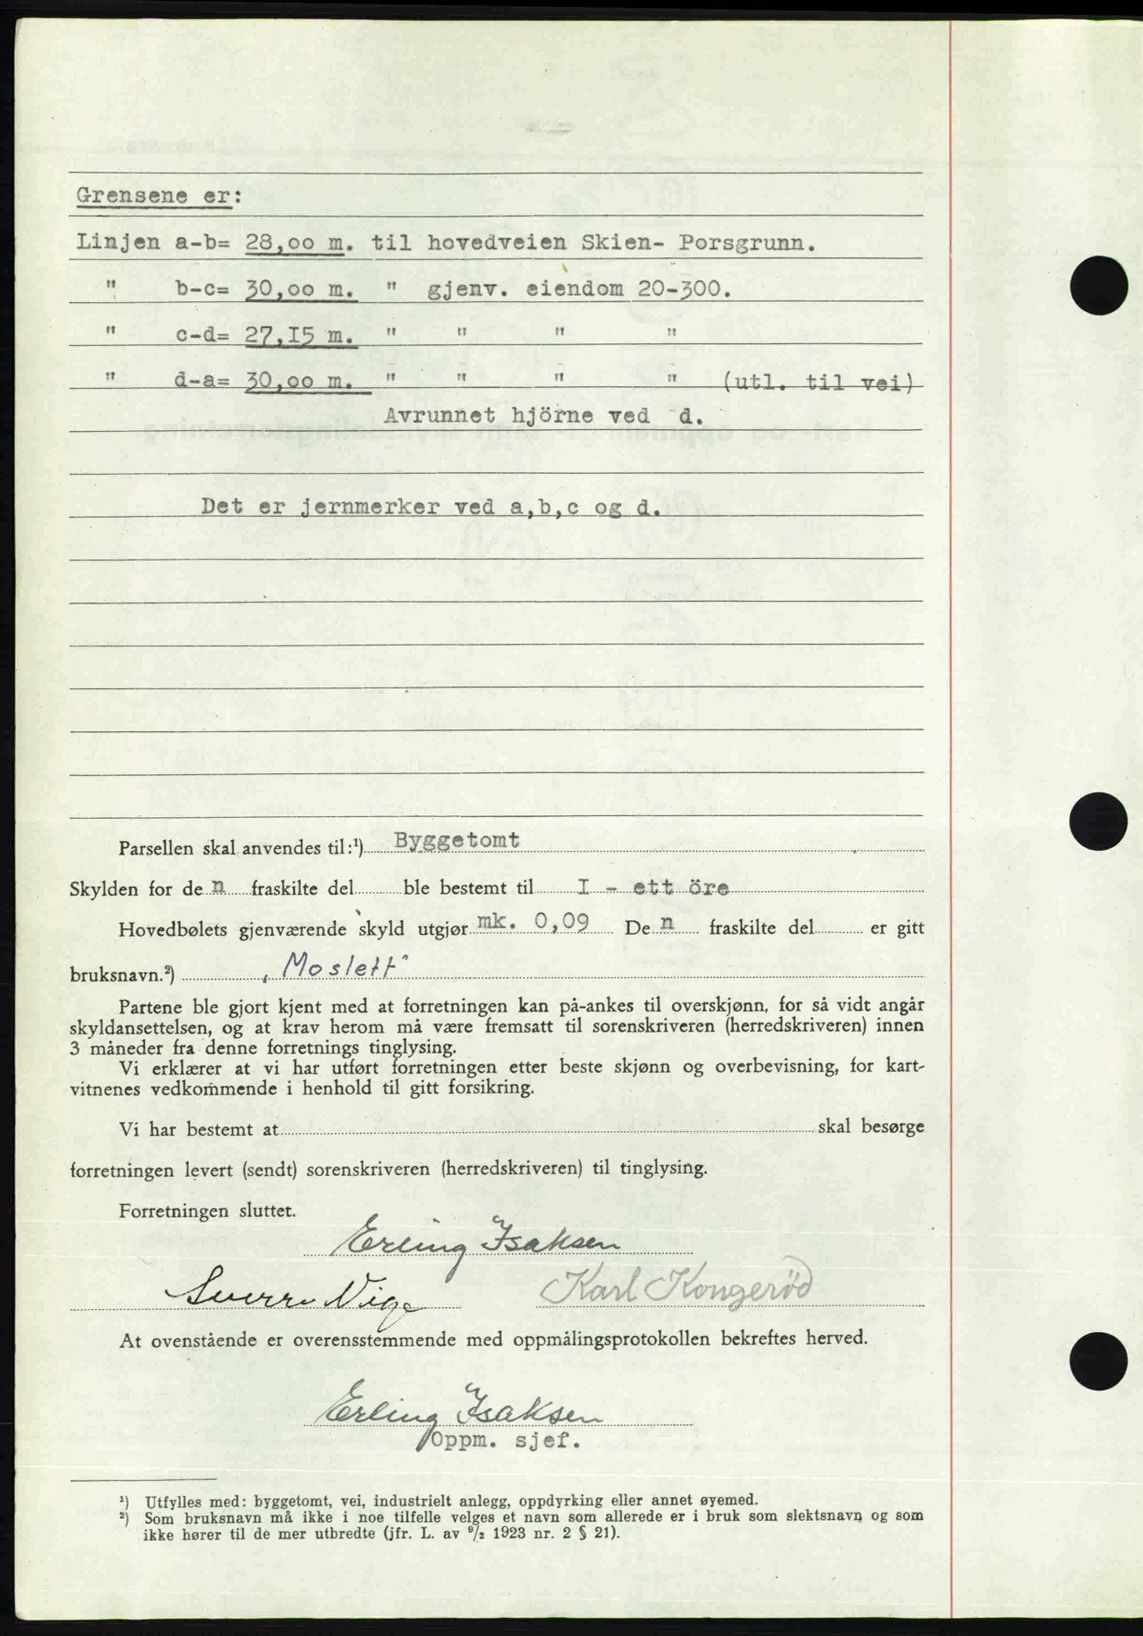 Grensene er:
Linjen a-b= 28,oo m. til hovedveien Skien- Porsgrunn.
" b-c= 30,oo m. " gjenv. eiendom 20-300.
" c-d= 27,I5 m. " " " "
" d-a= 30,oo m. " " " " (utl. til vei)
Avrunnet hjörne ved d.
Det er jernmerker ved a,b,c og d.
Parsellen skal anvendes til:¹) Byggetomt
Skylden for de n fraskilte del ble bestemt til I - ett öre
Hovedbølets gjenværende skyld utgjør mk. 0,09 De n fraskilte del er gitt
bruksnavn.²) „Moslett"
Partene ble gjort kjent med at forretningen kan på-ankes til overskjønn, for så vidt angår
skyldansettelsen, og at krav herom må være fremsatt til sorenskriveren (herredskriveren) innen
3 måneder fra denne forretnings tinglysing.
Vi erklærer at vi har utført forretningen etter beste skjønn og overbevisning, for kart-
vitnenes vedkommende i henhold til gitt forsikring.
Vi har bestemt at skal besørge
forretningen levert (sendt) sorenskriveren (herredskriveren) til tinglysing.
Forretningen sluttet.
Erling Isaksen
Sverre Vige Karl Kongerød
At ovenstående er overensstemmende med oppmålingsprotokollen bekreftes herved.
Erling Isaksen
Oppm. sjef.
¹) Utfylles med: byggetomt, vei, industrielt anlegg, oppdyrking eller annet øyemed.
²) Som bruksnavn må ikke i noe tilfelle velges et navn som allerede er i bruk som slektsnavn og som
ikke hører til de mer utbredte (jfr. L. av ⁹/₂ 1923 nr. 2 § 21).